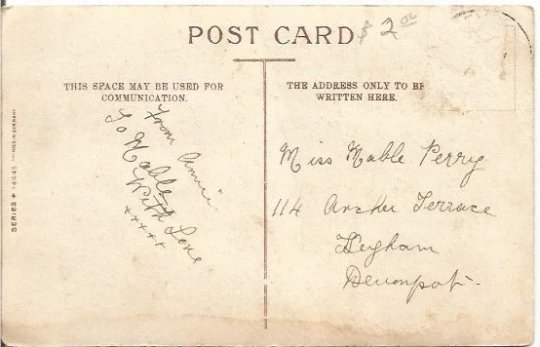 POST CARD
$ 2.00
THIS SPACE MAY BE USED FOR
COMMUNICATION.
From Annie
To Mable
With Love
xxxxx
THE ADDRESS ONLY TO BE
WRITTEN HERE.
Miss Mable Perry
114 Archer Terrace
Keyham
Devonport.
SERIES